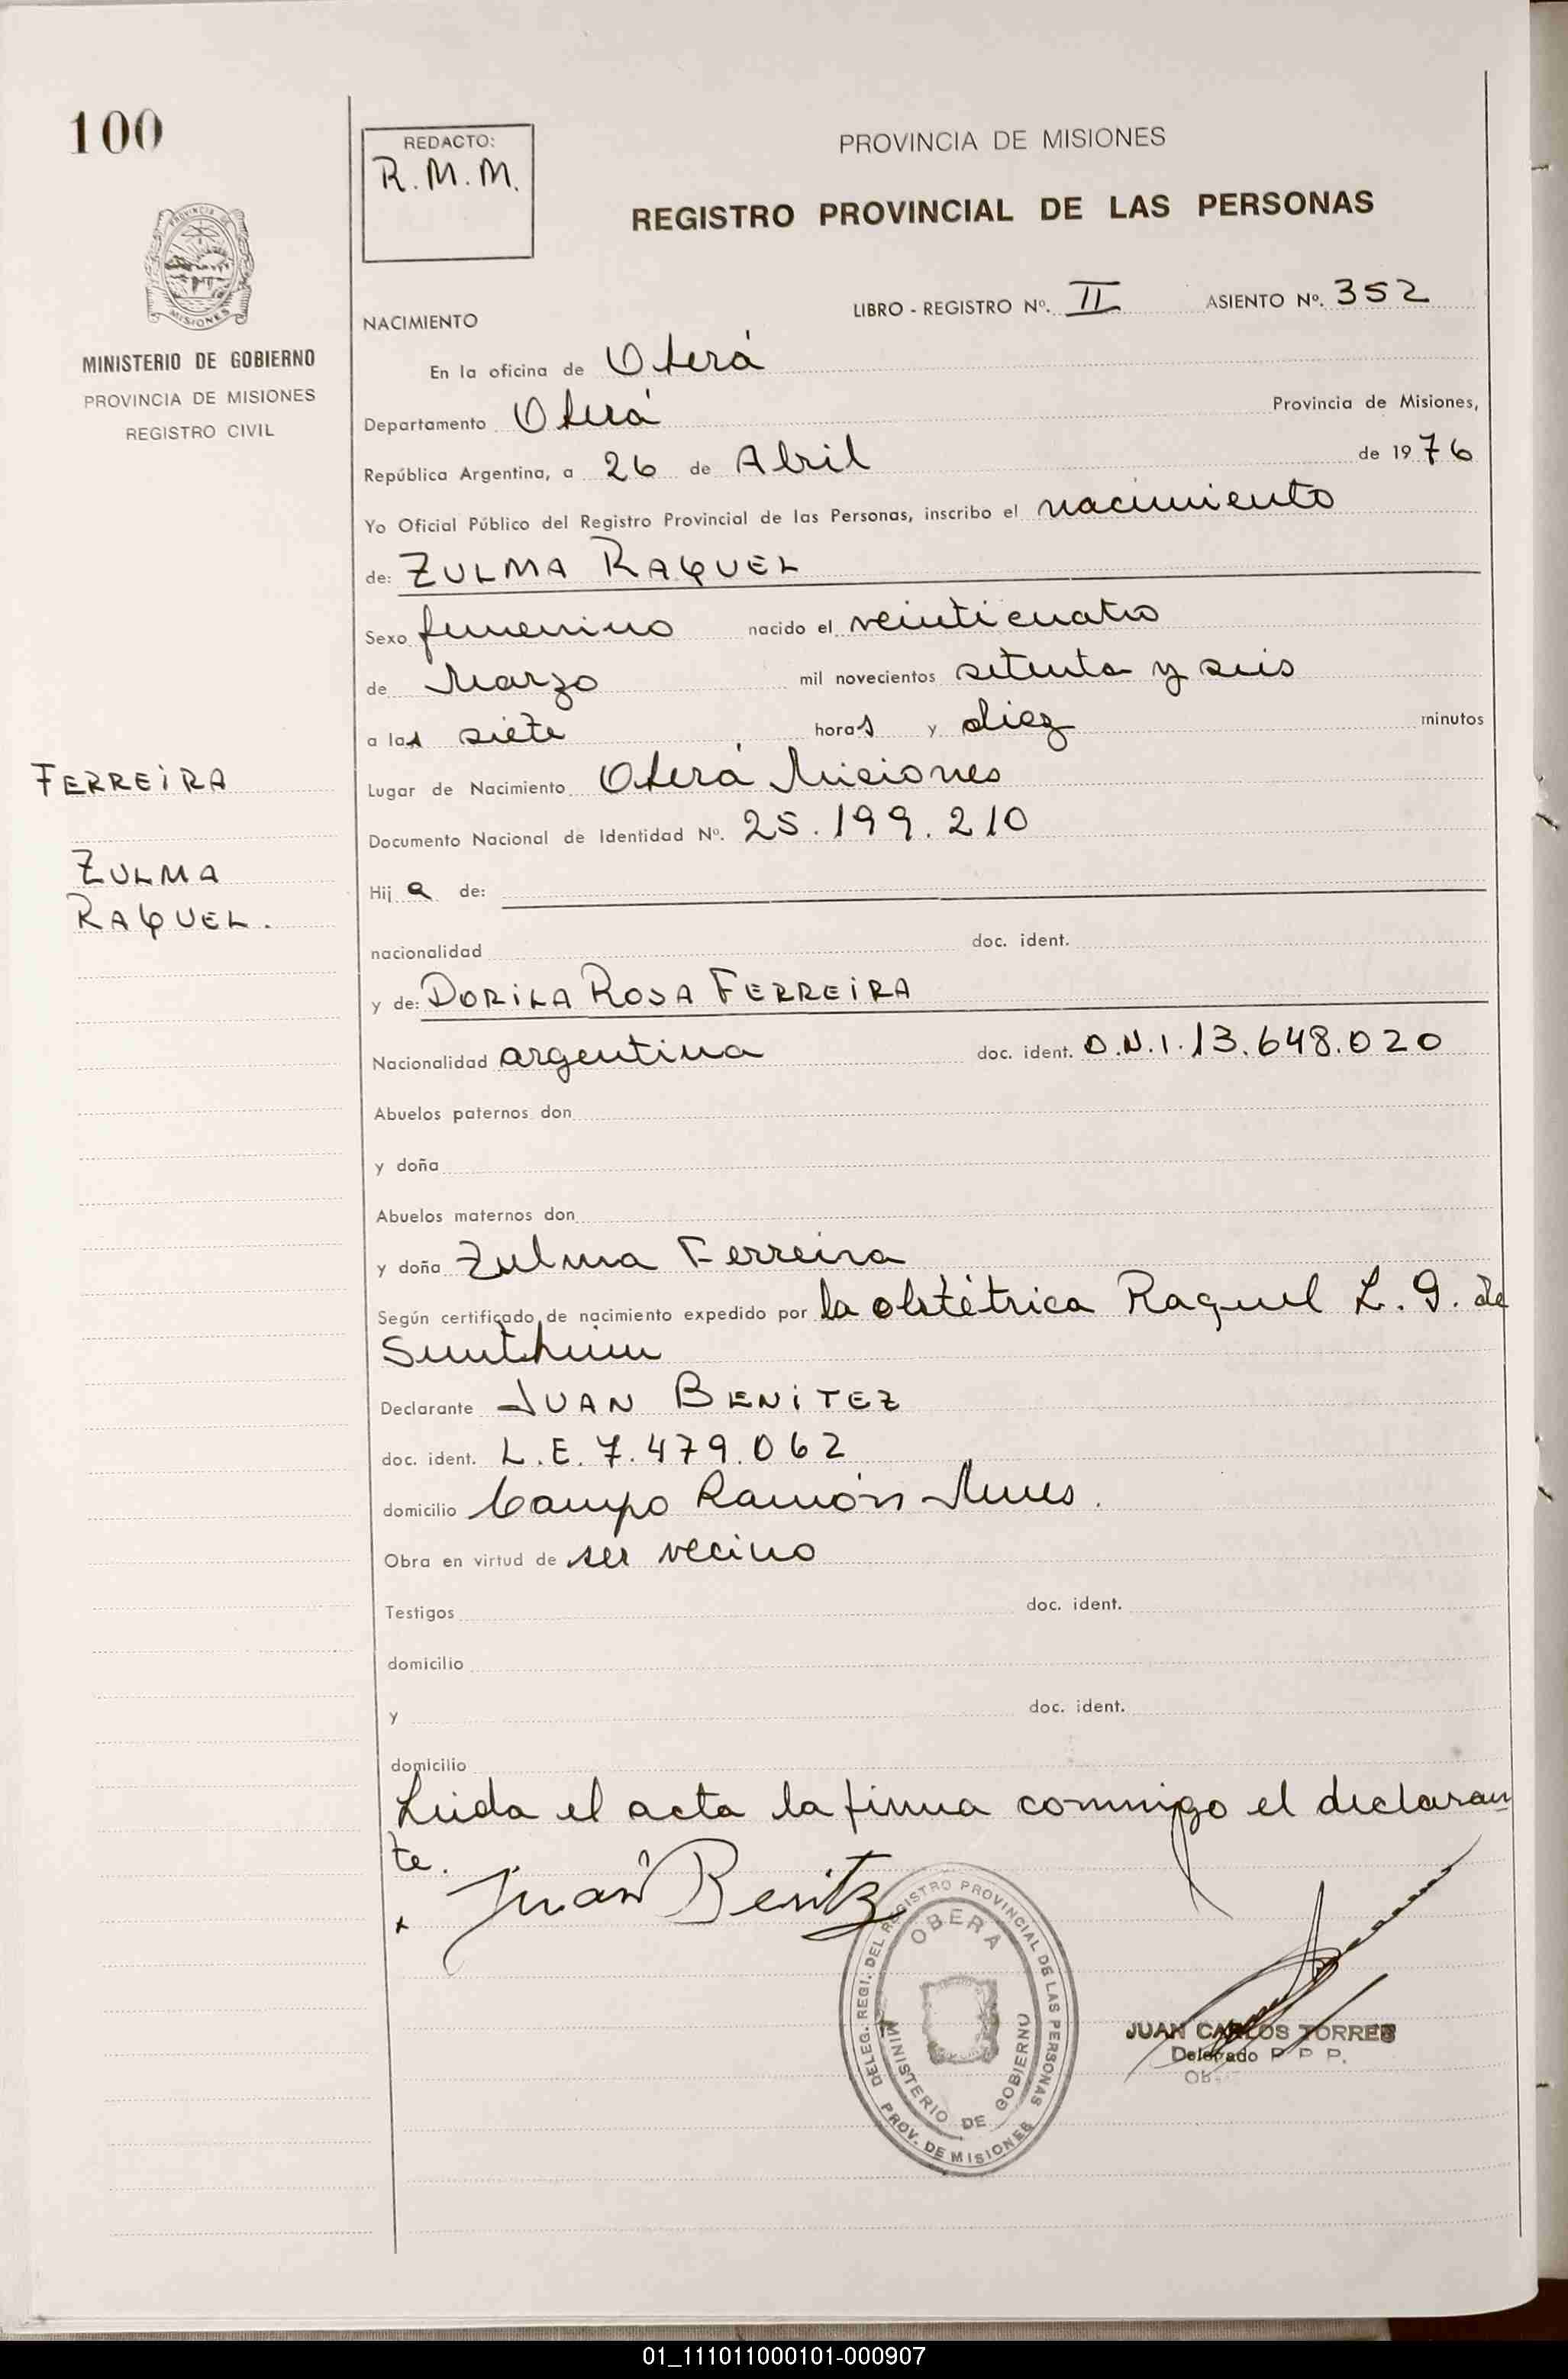 100
REDACTO:
R.M.M.
PROVINCIA DE MISIONES
REGISTRO PROVINCIAL DE LAS PERSONAS
PROVINCIA DE
MISIONES
MINISTERIO DE GOBIERNO
PROVINCIA DE MISIONES
REGISTRO CIVIL
LIBRO - REGISTRO Nº. II ASIENTO Nº. 352
NACIMIENTO
En la oficina de Oberá
Departamento Oberá Provincia de Misiones,
República Argentina, a 26 de Abril de 1976
Yo Oficial Público del Registro Provincial de las Personas, inscribo el nacimiento
de: ZULMA RAQUEL
Sexo femenino nacido el veinticuatro
de Marzo mil novecientos setenta y seis
a las siete horas y diez minutos
FERREIRA
Lugar de Nacimiento Oberá Misiones
Documento Nacional de Identidad Nº. 25.199.210
ZULMA
RAQUEL.
Hija de:
nacionalidad doc. ident.
y de: DORILA ROSA FERREIRA
Nacionalidad argentina doc. ident. D.N.I. 13.648.020
Abuelos paternos don
y doña
Abuelos maternos don
y doña Zulma Ferreira
Según certificado de nacimiento expedido por la obstétrica Raquel L. G. de
Declarante JUAN BENITEZ
doc. ident. L.E. 7.479.062
domicilio Campo Ramón Mnes.
Obra en virtud de ser vecino
Testigos doc. ident.
domicilio
y doc. ident.
domicilio
Leida el acta la firma conmigo el declaran
te.
x Juan Benitz
DELEG. REGI. DEL REGISTRO PROVINCIAL DE LAS PERSONAS
OBERA
MINISTERIO DE GOBIERNO
PROV. DE MISIONES
JUAN CARLOS TORRES
Delegado R P P.
OB
01_111011000101-000907